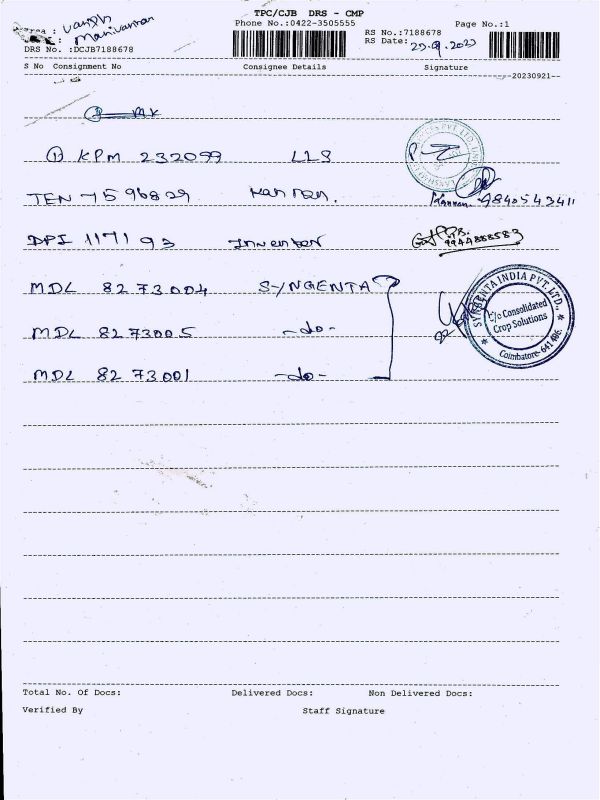 TPC/CJB DRS - CMP
Phone No.:0422-3505555
Page No.:1
RS No.:7188678
RS Date: 23.09.2023
Area : Vansh
: Manivannan
DRS No. :DCJB7188678
S No Consignment No Consignee Details Signature
--20230921--
① KPM 232099 LLS
TEN 7596829 Kannan.
Kannan 9840543411
DPI 1171193 Inventor
9944888583
MDL 8273004 SYNGENTA
MDL 8273005 -do-
MDL 8273001 -do-
SYNGENTA INDIA PVT. LTD.,
C/o Consolidated
Crop Solutions
Coimbatore- 641
Total No. Of Docs: Delivered Docs: Non Delivered Docs:
Verified By Staff Signature